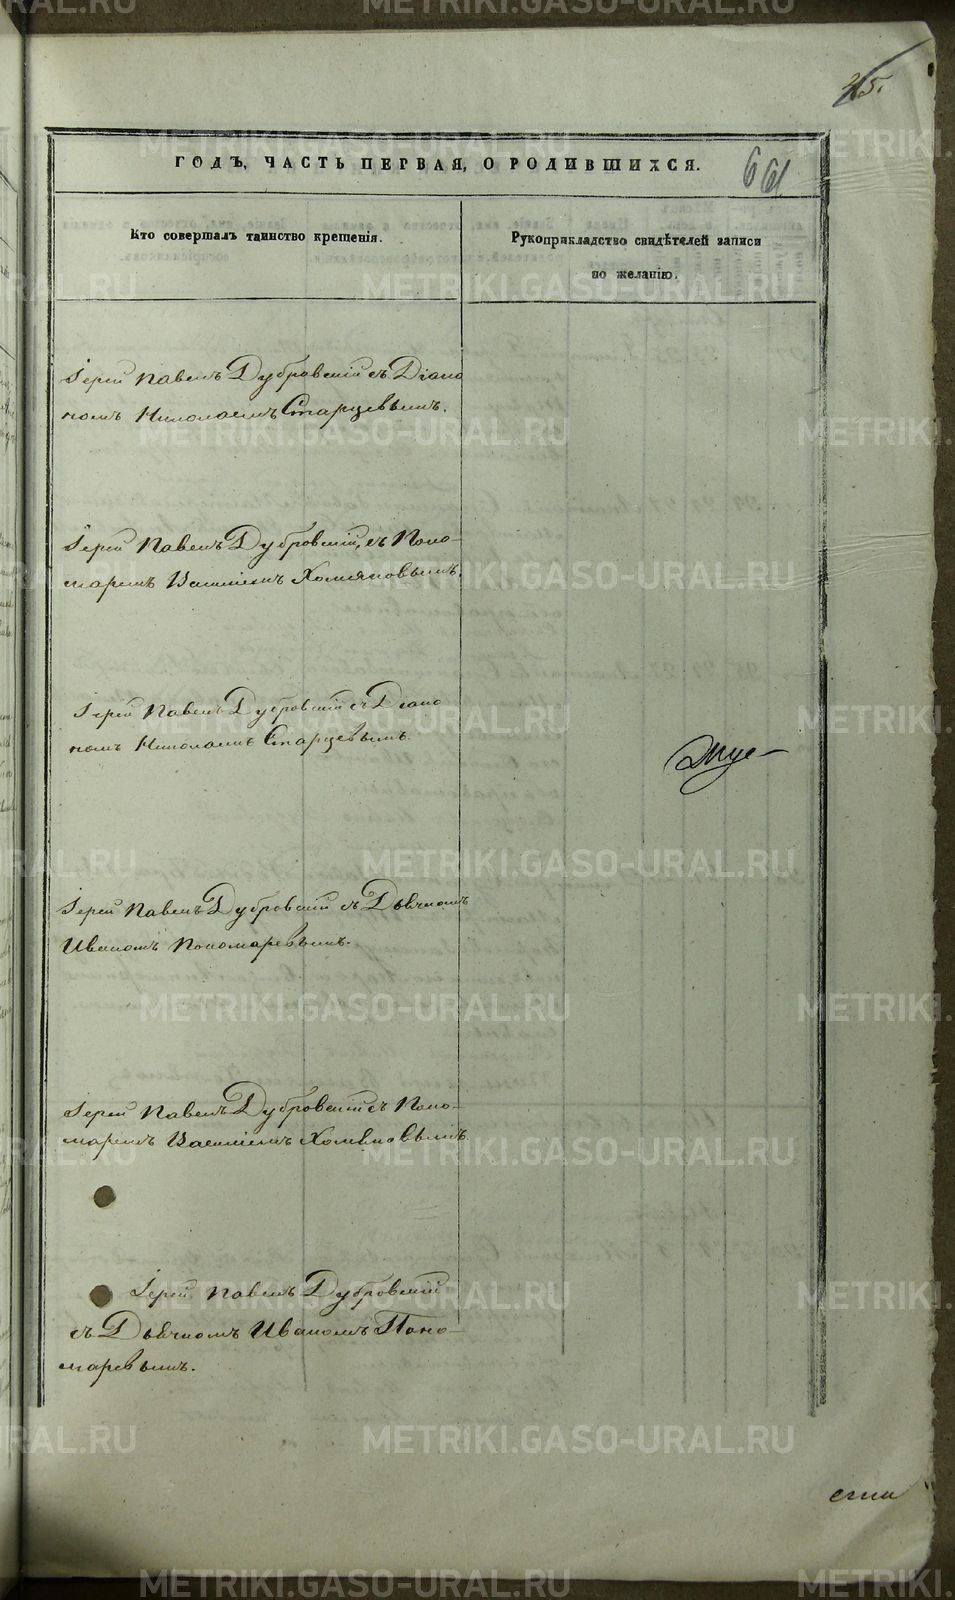 45.
ГОДЪ, ЧАСТЬ ПЕРВАЯ, О РОДИВШИХСЯ.
661
Кто совершалъ таинство крещенія.
Рукоприкладство свидѣтелей записи
по желанію.
Іерей Павелъ Дубровскій съ Діако
номъ Николаемъ Старцевымъ.
Іерей Павелъ Дубровскій, съ Поно-
маремъ Василіемъ Хомяковымъ.
Іерей Павелъ Дубровскій съ Діако
номъ Николаемъ Старцевымъ.
Іерей Павелъ Дубровскій съ Дьячкомъ
Иваномъ Пономаревымъ.
Іерей Павелъ Дубровскій съ Поно-
маремъ Василіемъ Хомяковымъ.
Іерей Павелъ Дубровскій
съ Дьячкомъ Иваномъ Поно-
маревымъ.
METRIKI.GASO-URAL.RU